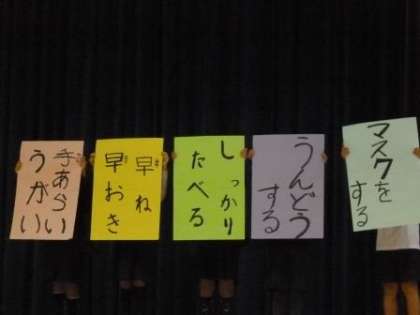 手あらい
うがい
早ね
早おき
しっかり
たべる
うんどう
する
マスクを
する